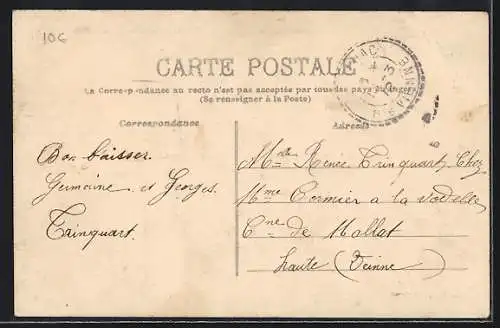 10€
CARTE POSTALE
La Correspondance au recto n'est pas acceptée par tous les pays étrangers
(Se renseigner à la Poste)
Correspondance
Adresse
Bon baiser.
Germaine et Georges.
Trinquart.
Mlle Renée Trinquart, Chez
Mme Cormier à la
Cne de
haute (Vienne)
VIENNE